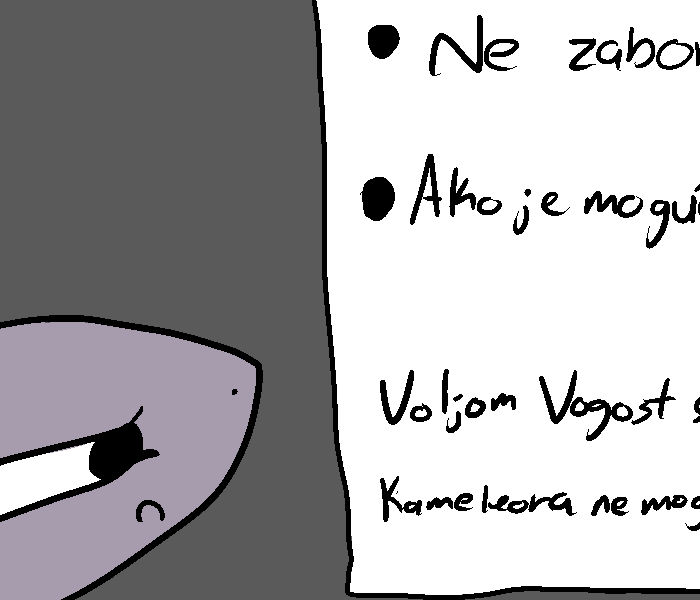 Ne zabor
Ako je mogu
Voljom Vogost s
Kameleora ne mog